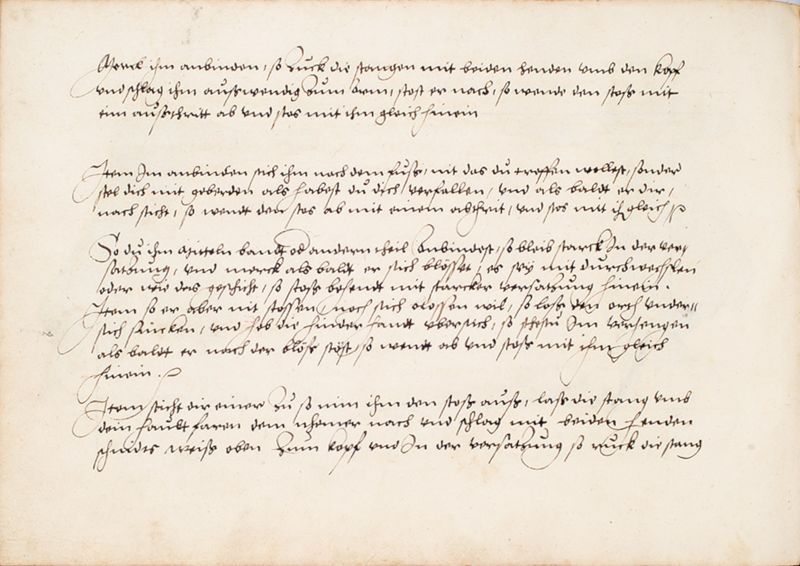 Merck ihm anbinden, so Zuck die stangen mit beiden henden umb den kopf
und schlag ihm außwendig zum arm, stost er nach, so wende den stoß mit
eim außthritt ab und stos mit ihm gleich hinein
Item Im anbinden stich ihm nach dem fuß, nit das du troffen wellest, sonder
stel dich mit geberden als habest du dich verfallen, und als baldt er dir,
nach sticht, so wendt den stos ab mit einem abthrit, und stos mit ihm gleich
So du ihm Mitteln bandt od andern theil Anbindest, so bleib starck In der ver
satzung, und merck als baldt er sich blösset, es sey mit durchwechslen
oder wie das geschicht, so stoß behendt mit starcker versatzung hinein.
Item so er aber nit stossen noch sich blossen wil, so loß den orth under
sich sincken, und heb die hinder handt ubersich, so stehstu Im versengen
als baldt er nach der blöß stöst, so wendt ab und stoß mit ihm gleich
hinein.
Item sticht dir einer Zu so nim ihm den stoß auß, laß die stang umb
dein haupt faren dem nhemer nach und schlag mit beiden henden
schnidts weiß oben Zum kopf und In der versatzung so ruck die stang